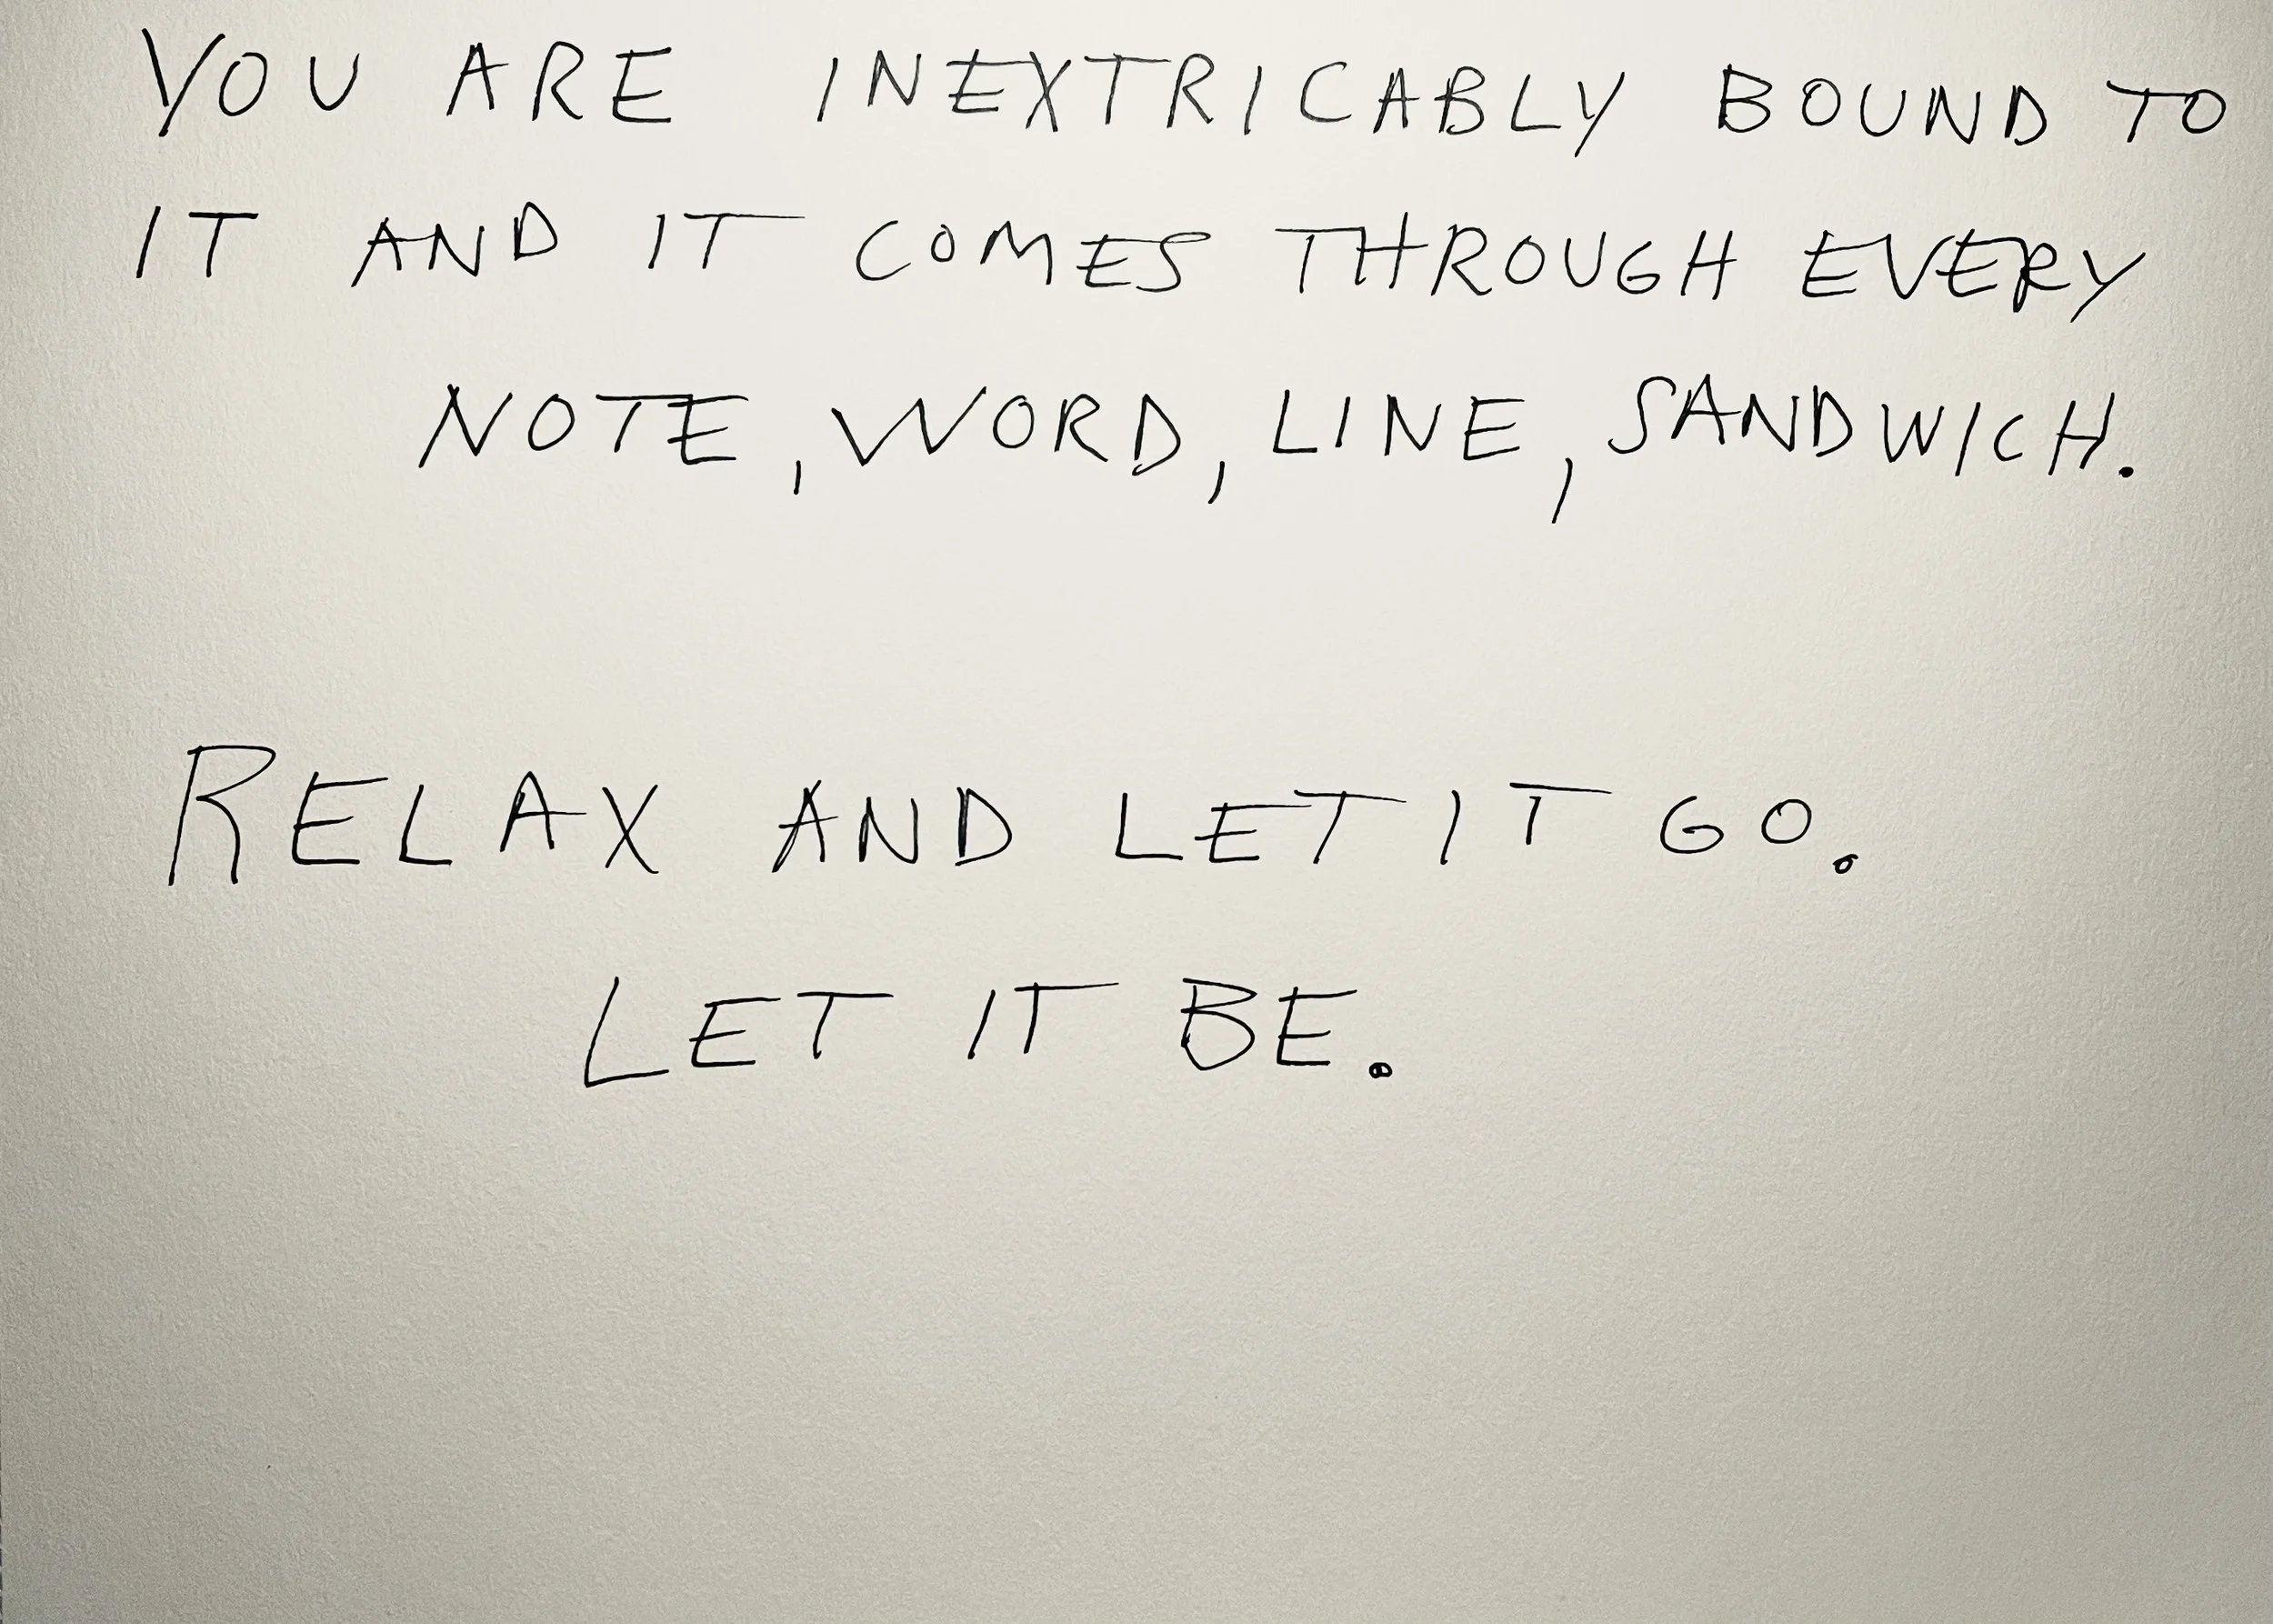 YOU ARE INEXTRICABLY BOUND TO
IT AND IT COMES THROUGH EVERY
NOTE, WORD, LINE, SANDWICH.
RELAX AND LET IT GO.
LET IT BE.